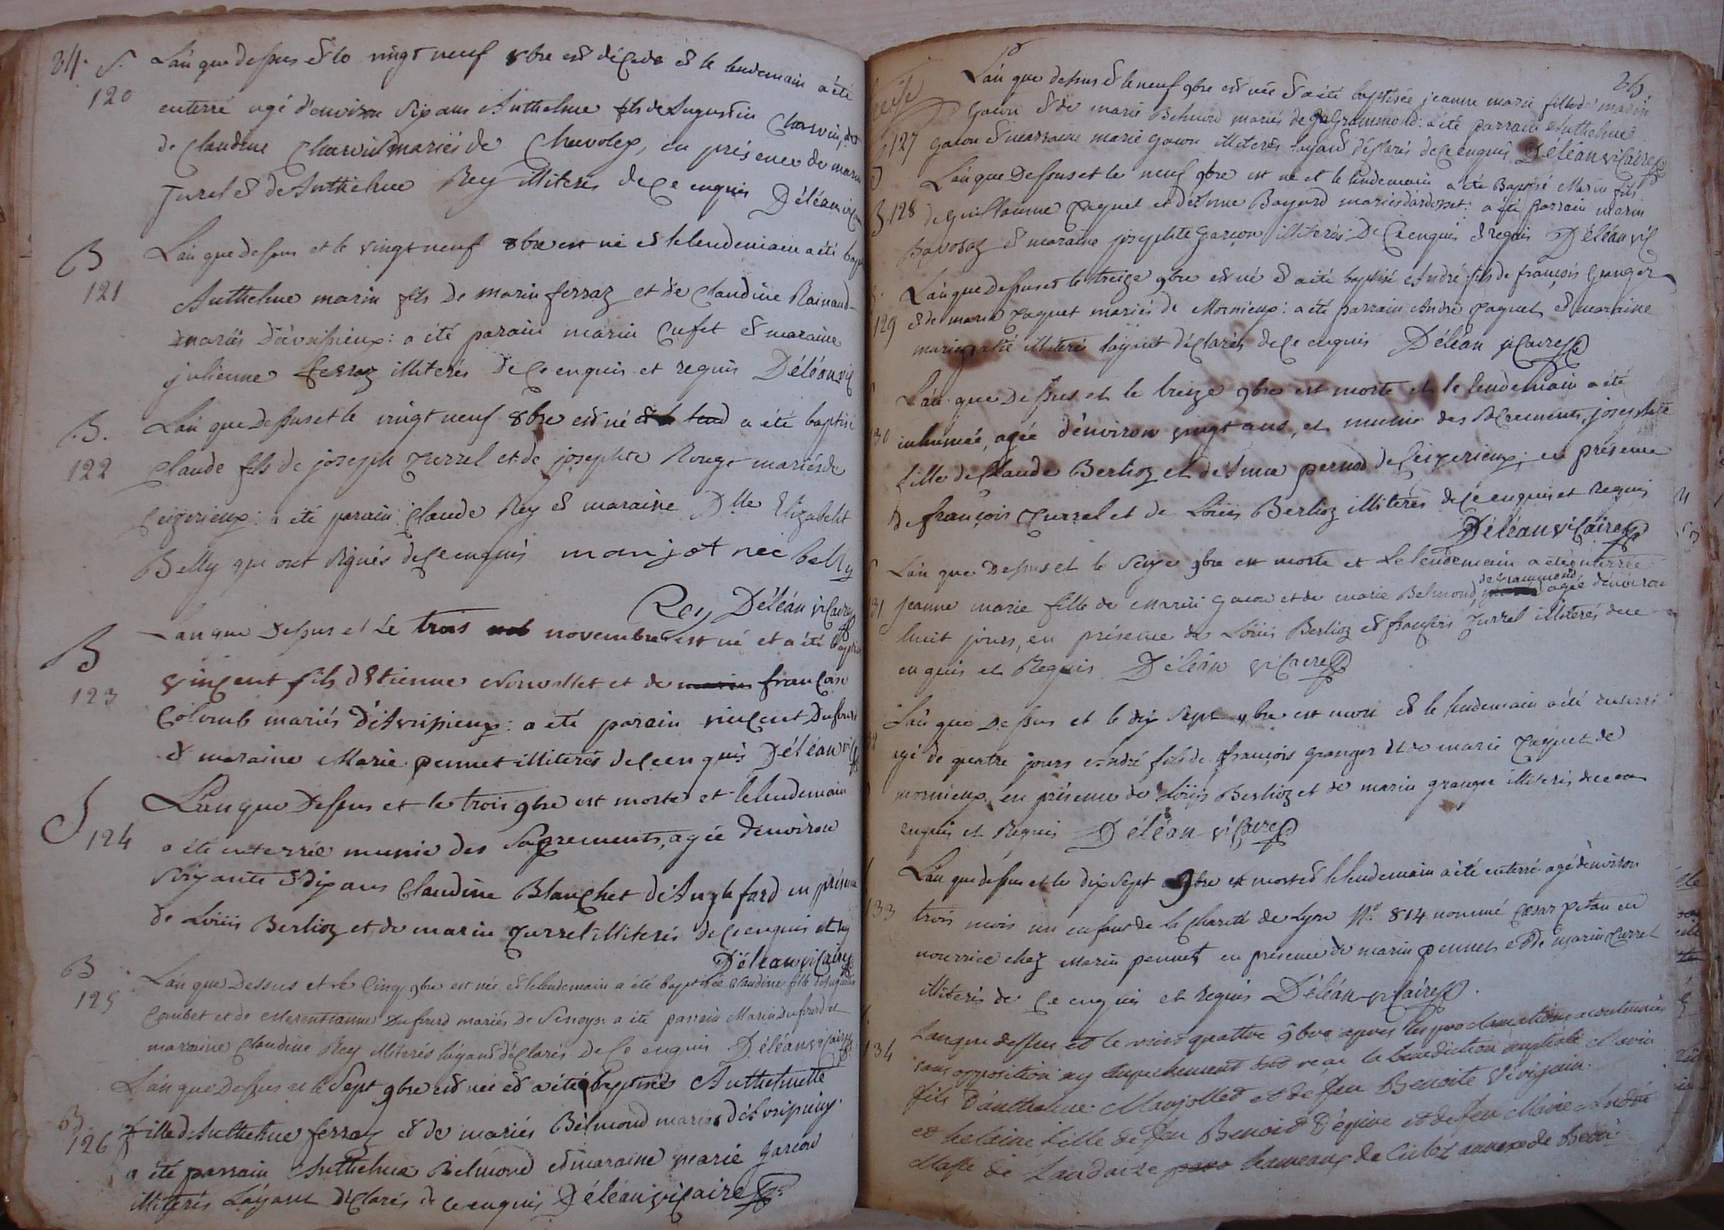 34.
S.
120
L'an que dessus et le vingt neuf 8bre est décédé et le lendemain a été
enterré agé d'environ six ans Anthelme fils de Augustin Charvin, et
de Claudine Charvin mariés de Chavoley, en présence de marin
Jurrel et de Anthelme Rey illiterés de ce enquis Déléan vic
B
121
L'an que dessus et le vingt neuf 8bre est né et le lendemain a été bap
Anthelme marin fils de marin ferraz et de Claudine Rainaud
mariés d'avrissieux: a été parain marin Cufet et maraine
julienne ferraz illiterés de ce enquis et requis Déléan vic
B.
122
L'an que dessus et le vingt neuf 8bre est né a été baptisé
Claude fils de joseph Jurrel et de josephte Rouge mariés de
Ceizerieux: a été parain Claude Rey et maraine Dlle Elizabeth
Belly qui ont signés de ce enquis manjot née belly
Rey Déléan vicaire
B
123
L'an que dessus et le trois novembre est né et a été baptisé
vincent fils d'Etienne et de françoise
Colomb mariés d'Avrissieux: a été parain vincent Dufour
et maraine Marie pennet illiterés de ce enquis Déléan vic
S
124
L'an que dessus et le trois 9bre est morte et le lendemain
a été enterrée munie des Sacrements, agée d'environ
soixante et dix ans Claudine Blanchet d'Anglefard en présence
de Loüis Berlioz et de marin Jurrel illiterés de ce enquis et req
Déléan vicaire
B
125
L'an que Dessus et le Cinq 9bre est née et le lendemain a été baptisée Claudine fille
Combet et de mariés de : a été parrain Marin Dufourd et
maraine Claudine Rey illiterés l'ayant déclarés de ce enquis Déléan vicaire
B.
126
L'an que dessus et le sept 9bre est née et a été baptisée Anthelmette
fille d'Anthelme ferraz et de marie Belmond mariés d'Avrissieux.
a été parrain Anthelme Belmond et maraine marie garcon
illiterés l'ayant déclarés de ce enquis Déléan vicaire
26
127
L'an que dessus et le neuf 9bre est née et a été baptisée jeanne marie fille de marin
Gacon et de marie Belmond mariés de Grammond: a été parrain Anthelme
Gacon et marraine marie Gacon illiterés l'ayant déclarés de ce enquis Déléan vicaire
B. 128
L'an que dessus et le neuf 9bre est né et le lendemain a été Baptisé Marin fils
de Guillaume paquet et d' Bayard mariés d'ardosset: a été parrain marin
Bavosaz et maraine josephte garcon illiterés De ce enquis et requis Déléan vic
129
L'an que dessus et le treize 9bre est né et a été baptisé André fils de françois Granger
et de marie paquet mariés de Mornieux: a été parrain André paquet et marraine
marie illiteré l'ayant déclarés de ce enquis Déléan vicaire
130
L'an que dessus et le treize 9bre est morte et le lendemain a été
inhumée, agée d'environ vingt ans, et munie des Sacrements, josephte
fille de Claude Berlioz et de pernod de Ceizerieux; en présence
de françois Jurrel et de Loüis Berlioz illiterés de ce enquis et Requis
Déléan vicaire
131
L'an que dessus et le Seize 9bre est morte et le lendemain a été enterrée
jeanne marie fille de marin gacon et de marie Belmond, de Grammond agée d'environ
huit jours, en présence de Loüis Berlioz et françois Jurrel illiterés de ce
enquis et Requis Déléan vicaire
L'an que dessus et le dix Sept 9bre est mort et le lendemain a été enterré
agé de quatre jours André fils de françois granger et de marie paquet de
mornieux, en présence de Loüis Berlioz et de marin granger illiterés de ce
enquis et Requis Déléan vicaire
133
L'an que dessus et le dix sept 9bre est mort et le lendemain a été enterré agé d'environ
trois mois un enfant de la Charité de Lyon N° 814 nommé Cesar petau en
nourrice chez Marin pennet en présence de marin pennet et de marin Jurrel
illiterés de ce enquis et requis Déléan vicaire.
134
L'an que dessus et le vint quattre 9bre apres les proclamations
sans opposition ny empechement ont reçu la benediction nuptiale Marin
fils d'anthelme Manjollet et de feu Benoite
et helaine fille de feu Benoit D'epine et de feu Marie André
de Landaize hameaux de Culoz annexe de Beon